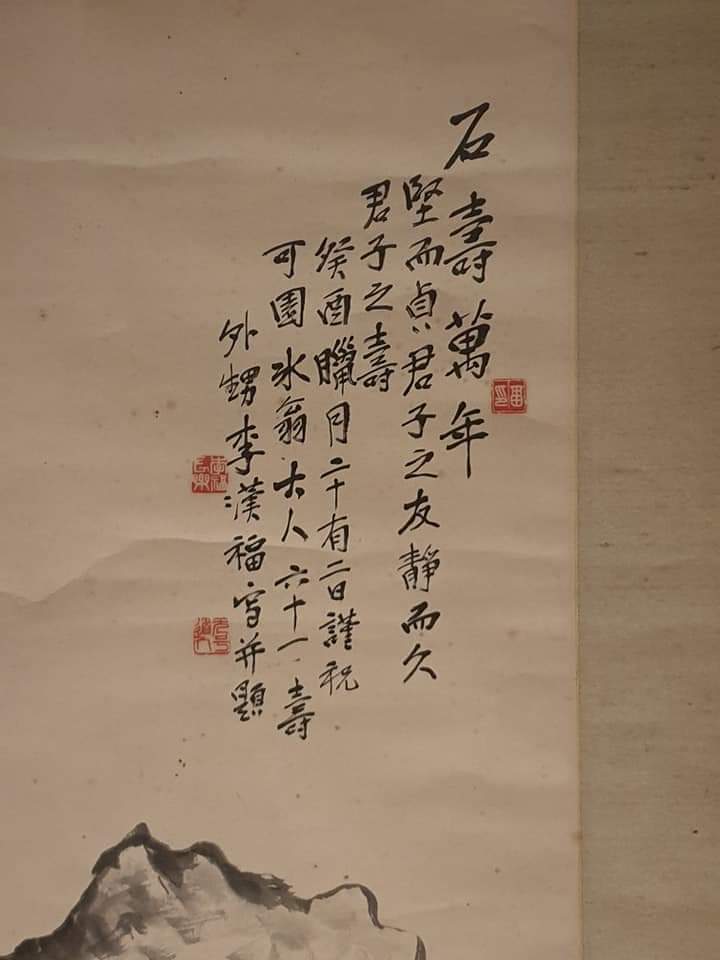 石壽萬年
堅而貞君子之友靜而久
君子之壽
癸酉臘月二十有二日謹祝
可園氷翁大人六十一壽
外甥李漢福写并題